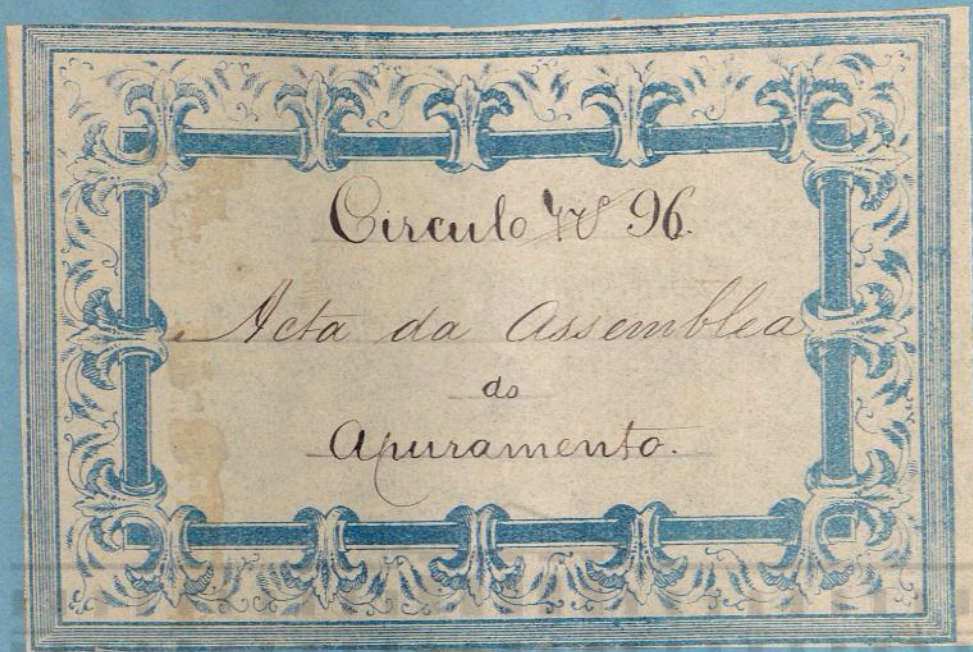 Circulo Nº 96.
Acta da Assemblea
do
Apuramento.